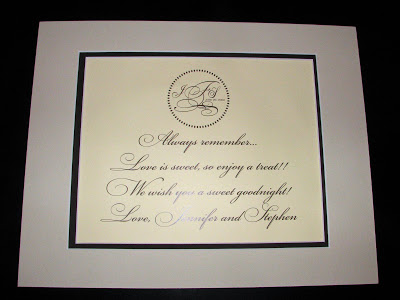 JFS
Always remember...
Love is sweet, so enjoy a treat!!
We wish you a sweet goodnight!
Love, Jennifer and Stephen